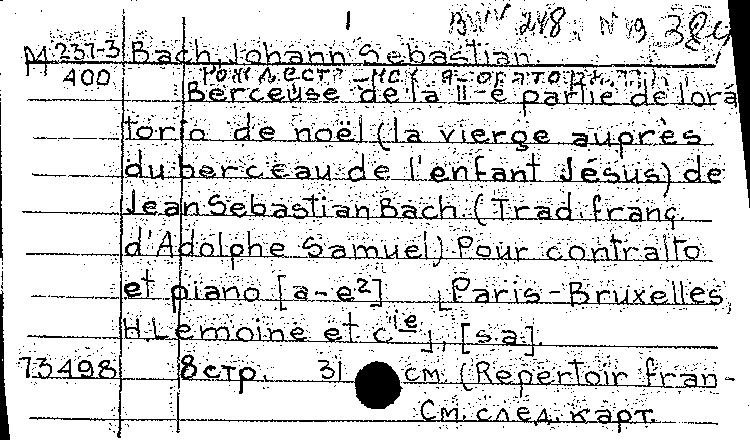 1 BWV 248. N 19 384
M 237-3 Bach, Johann Sebastian.
400 Рождест
Berceuse de la II-e partie de l'ora
torio de noël (la vierge auprès
du berceau de l'enfant Jésus) de
Jean Sebastian Bach. (Trad. franç.
d'Adolphe Samuel) Pour contralto
et piano [a-e²] [Paris-Bruxelles,
H. Lemoine et Cie], [s.a.].
73498 8 стр. 31 см. (Repertoir fran-
См. след. карт.